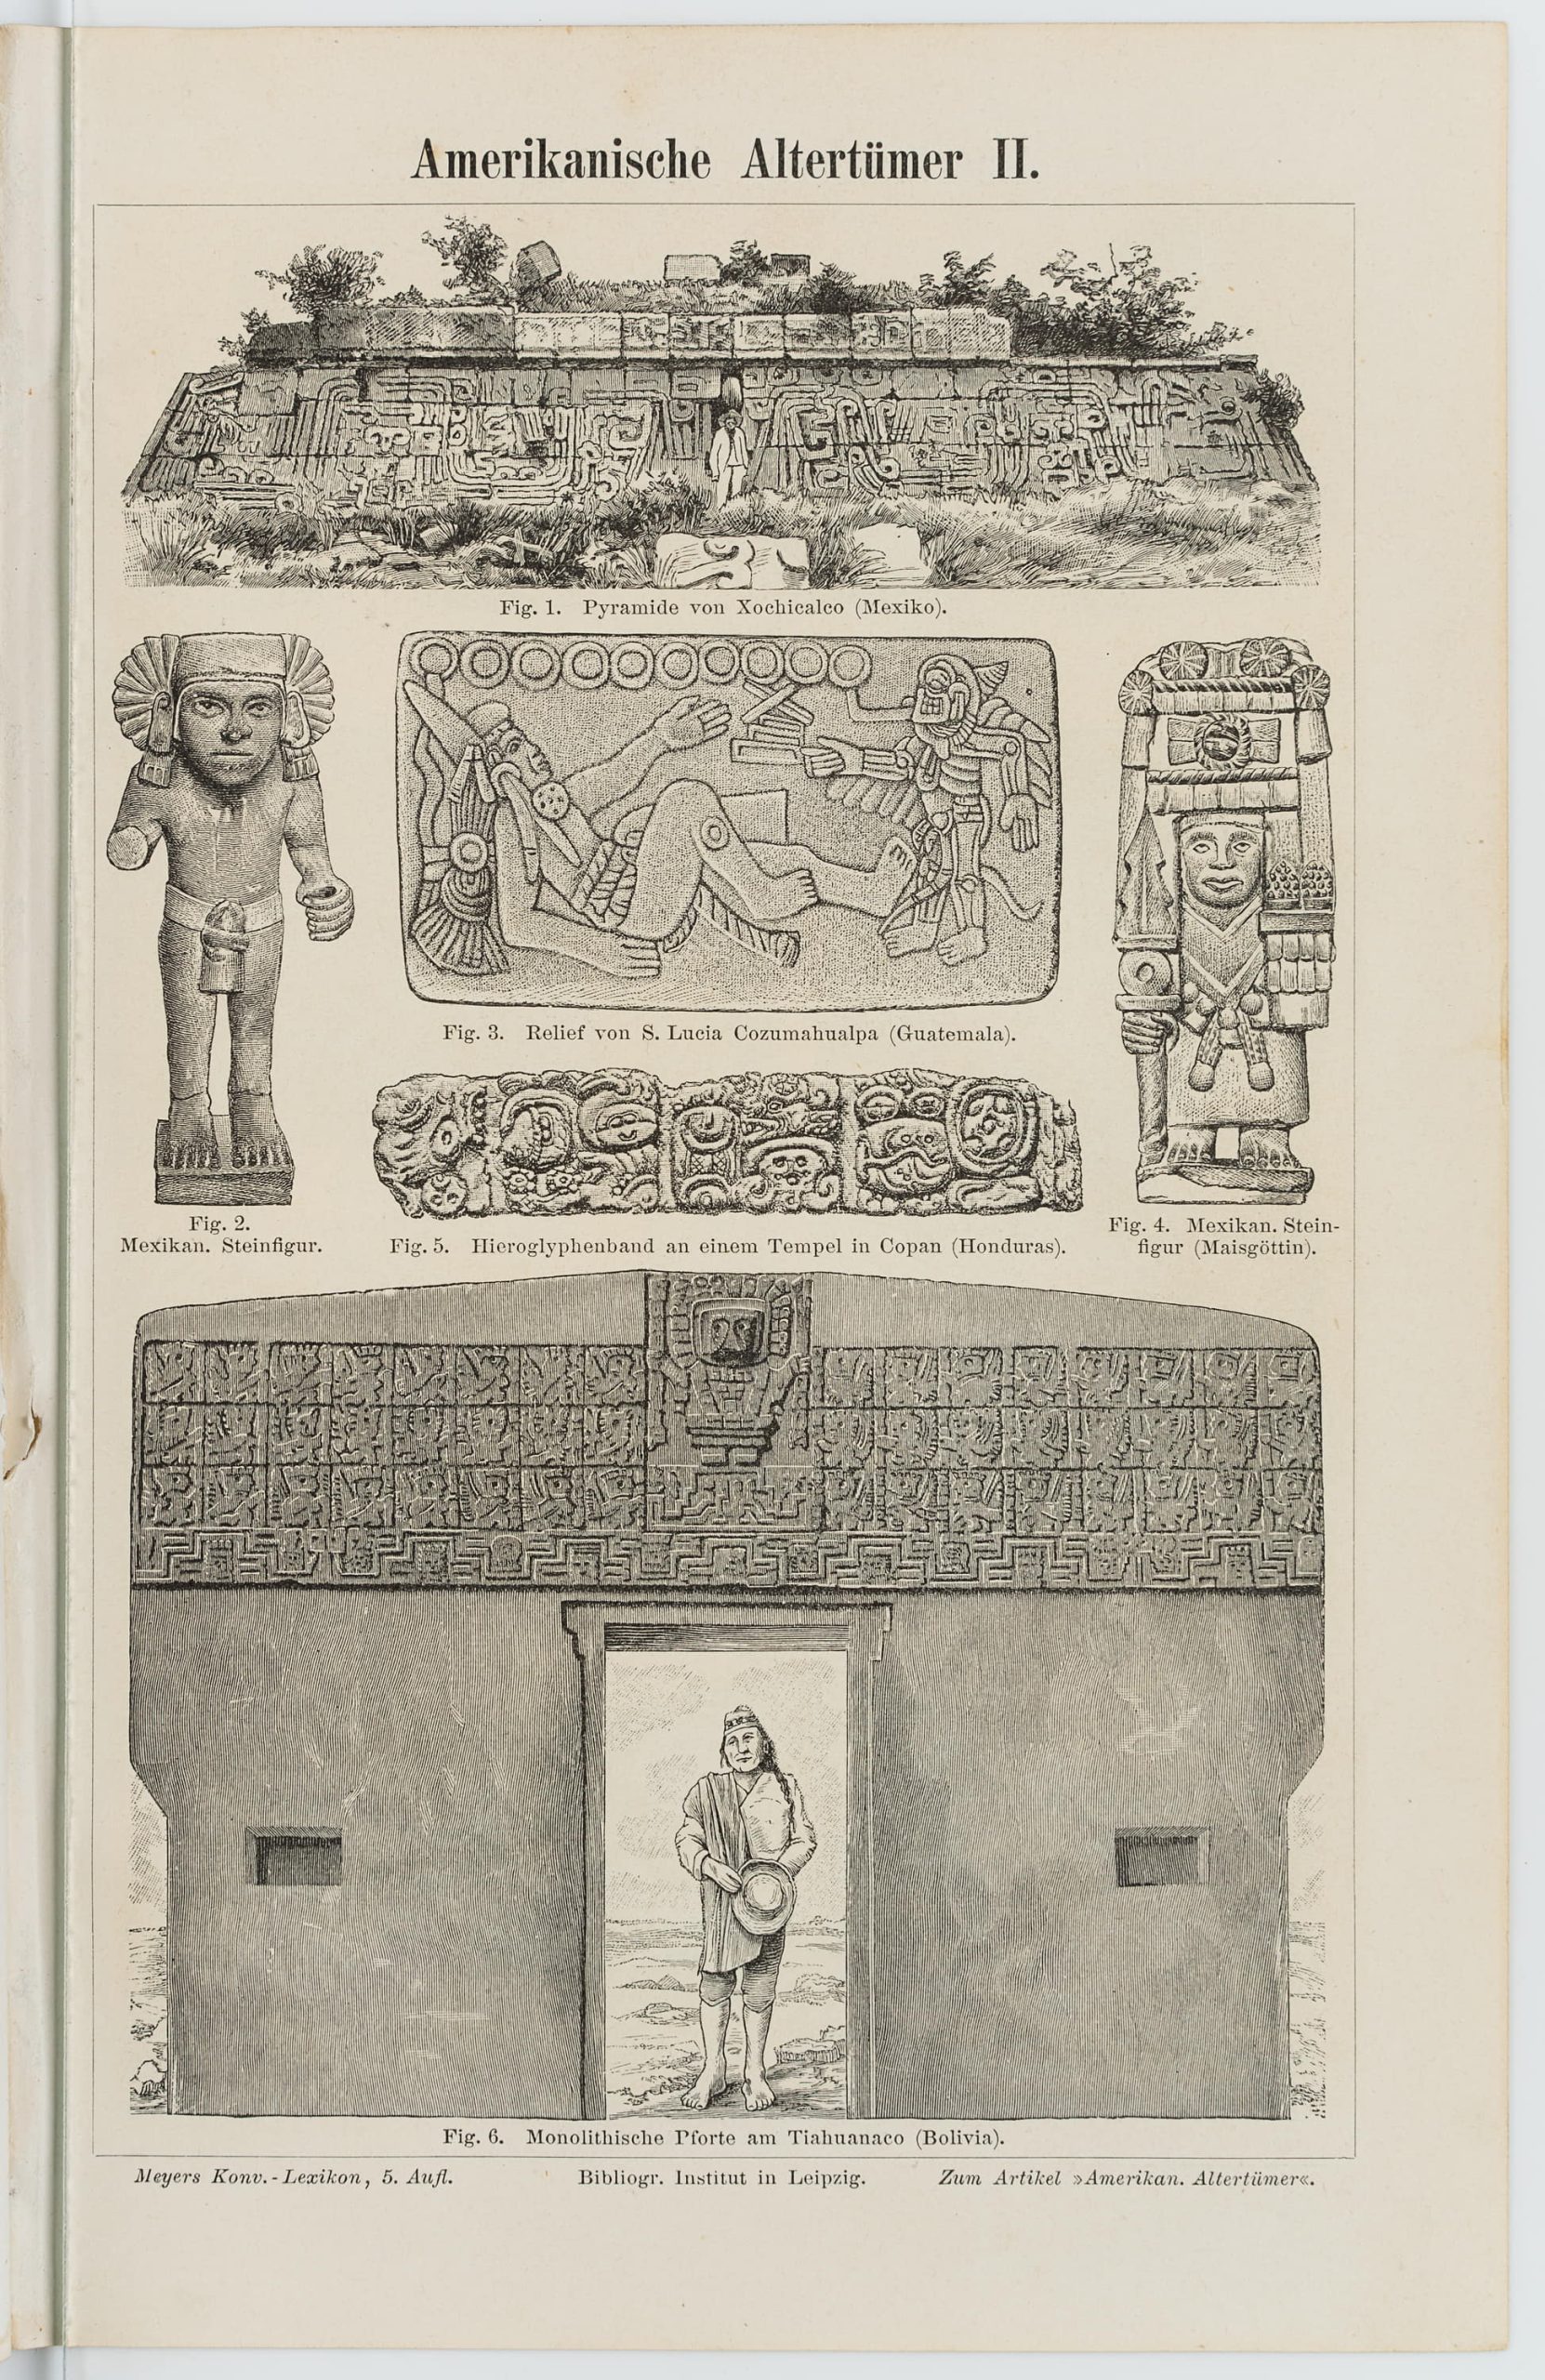 Amerikanische Altertümer II.
Fig. 1. Pyramide von Xochicalco (Mexiko).
Fig. 2.
Mexikan. Steinfigur.
Fig. 3. Relief von S. Lucia Cozumahualpa (Guatemala).
Fig. 4. Mexikan. Stein-
figur (Maisgöttin).
Fig. 5. Hieroglyphenband an einem Tempel in Copan (Honduras).
Fig. 6. Monolithische Pforte am Tiahuanaco (Bolivia).
Meyers Konv.-Lexikon, 5. Aufl.
Bibliogr. Institut in Leipzig.
Zum Artikel »Amerikan. Altertümer«.